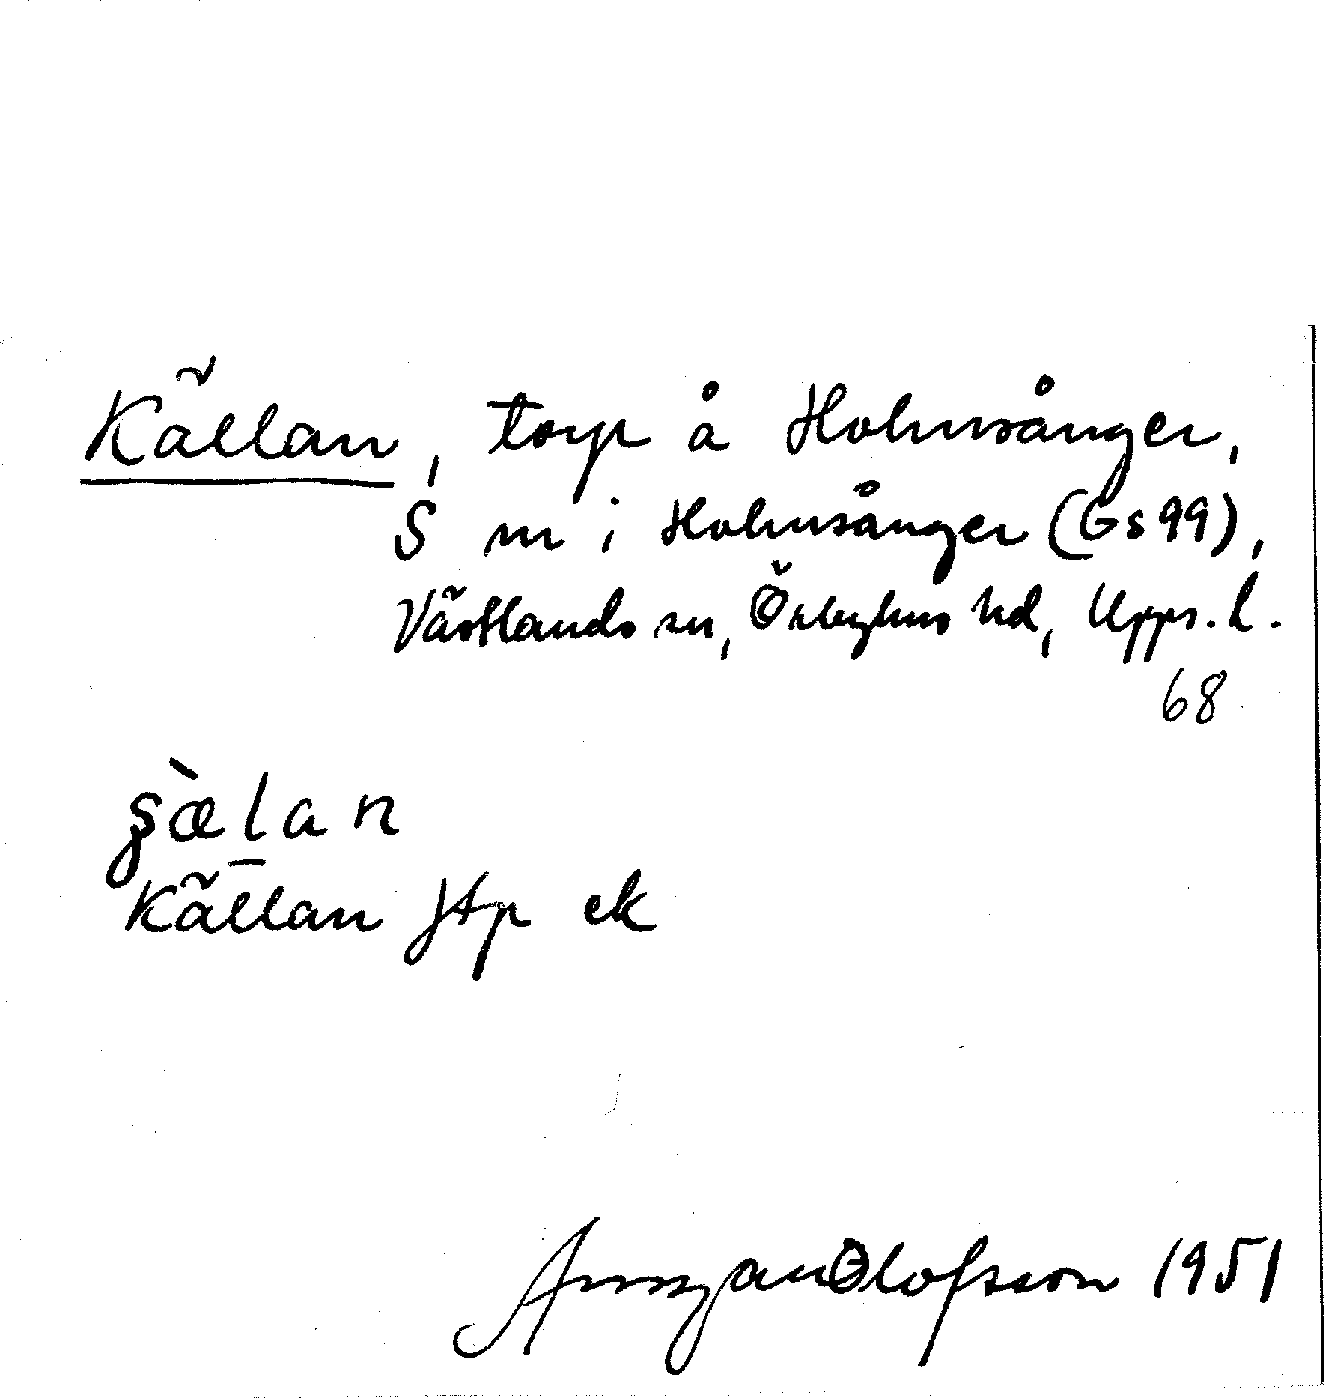 Källan, torp å Holmsånger,
S m i Holmsånger (Gs 99),
Västlands sn, Örbyhus hd, Upps. l.
68
ʂæ̀lan
Källan Jtp ek
Olofsson 1951